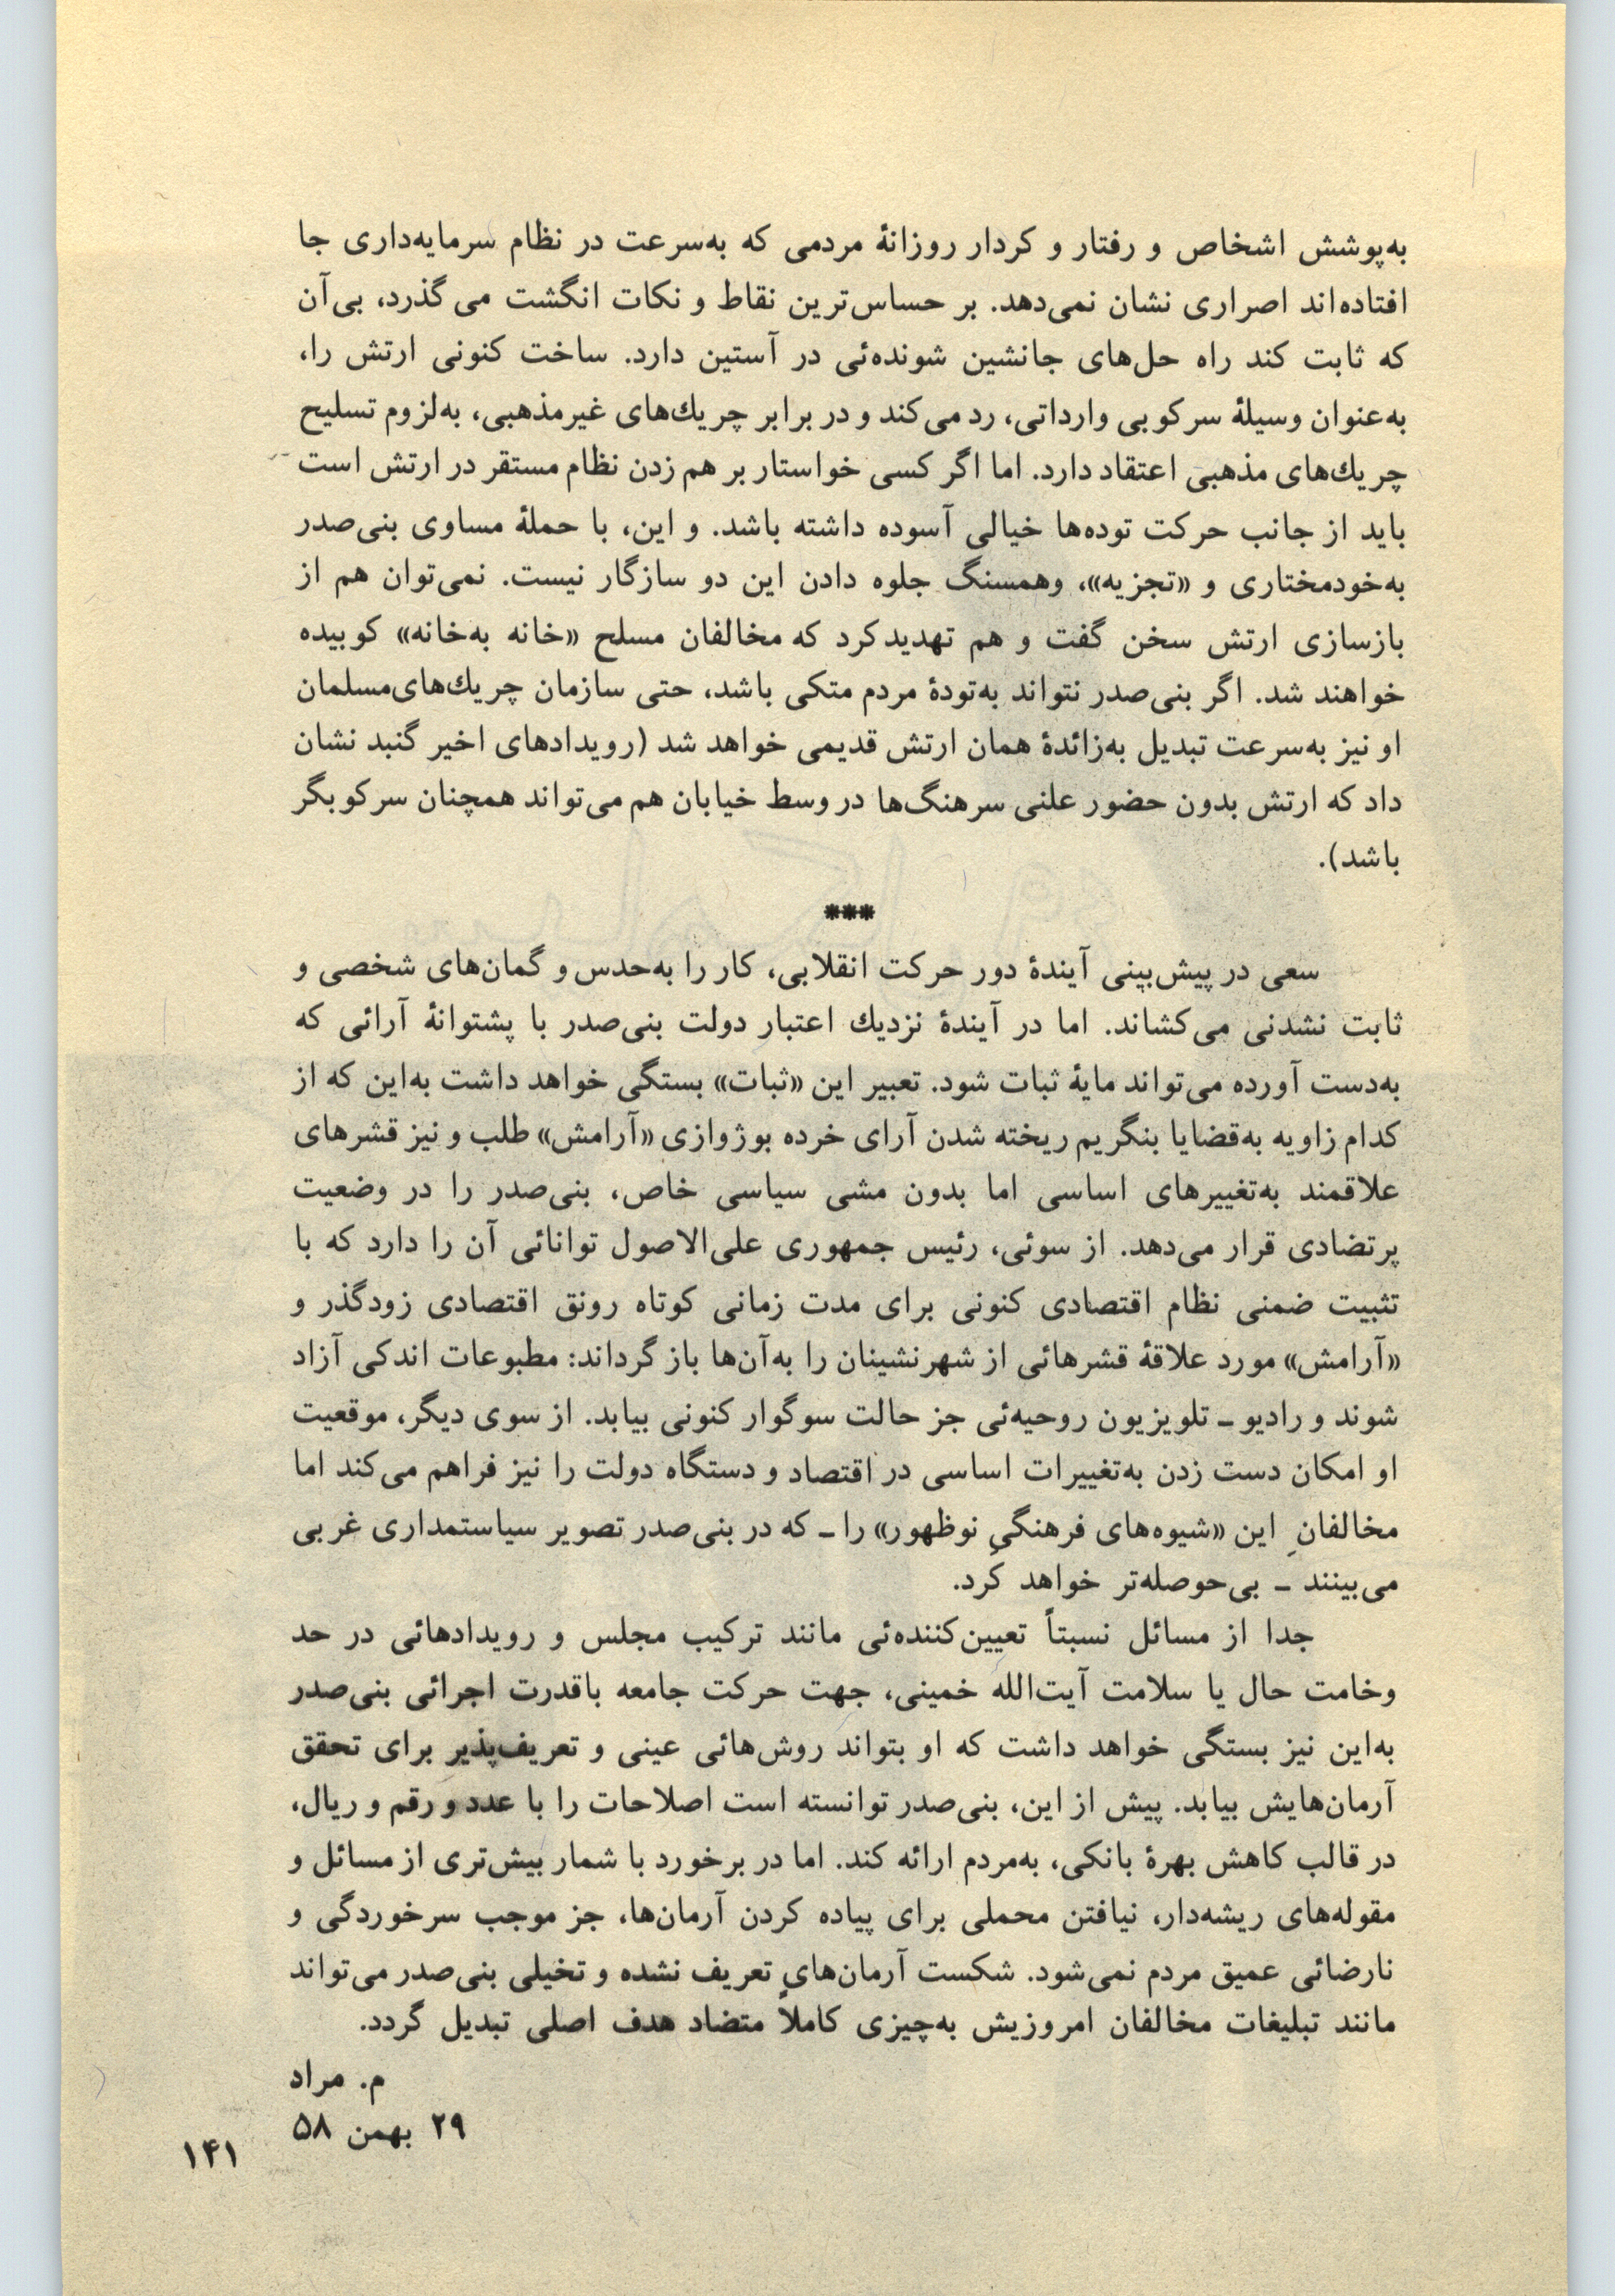 به‌پوشش اشخاص و رفتار و کردار روزانهٔ مردمی که به‌سرعت در نظام سرمایه‌داری جا
افتاده‌اند اصراری نشان نمی‌دهد. بر حساس‌ترین نقاط و نکات انگشت می‌گذرد، بی‌آن
که ثابت کند راه حل‌های جانشین شونده‌ئی در آستین دارد. ساخت کنونی ارتش را،
به‌عنوان وسیلهٔ سرکوبی وارداتی، رد می‌کند و در برابر چریك‌های غیرمذهبی، به‌لزوم تسلیح
چریك‌های مذهبی اعتقاد دارد. اما اگر کسی خواستار بر هم زدن نظام مستقر در ارتش است
باید از جانب حرکت توده‌ها خیالی آسوده داشته باشد. و این، با حملهٔ مساوی بنی‌صدر
به‌خودمختاری و «تجزیه»، وهمسنگ جلوه دادن این دو سازگار نیست. نمی‌توان هم از
بازسازی ارتش سخن گفت و هم تهدید کرد که مخالفان مسلح «خانه به‌خانه» کوبیده
خواهند شد. اگر بنی‌صدر نتواند به‌تودهٔ مردم متکی باشد، حتی سازمان چریك‌های‌مسلمان
او نیز به‌سرعت تبدیل به‌زائدهٔ همان ارتش قدیمی خواهد شد (رویدادهای اخیر گنبد نشان
داد که ارتش بدون حضور علنی سرهنگ‌ها در وسط خیابان هم می‌تواند همچنان سرکوبگر
باشد).
***
سعی در پیش‌بینی آیندهٔ دور حرکت انقلابی، کار را به‌حدس و گمان‌های شخصی و
ثابت نشدنی می‌کشاند. اما در آیندهٔ نزدیك اعتبار دولت بنی‌صدر با پشتوانهٔ آرائی که
به‌دست آورده می‌تواند مایهٔ ثبات شود. تعبیر این «ثبات» بستگی خواهد داشت به‌این که از
کدام زاویه به‌قضایا بنگریم ریخته شدن آرای خرده بوژوازی «آرامش» طلب و نیز قشرهای
علاقمند به‌تغییرهای اساسی اما بدون مشی سیاسی خاص، بنی‌صدر را در وضعیت
پرتضادی قرار می‌دهد. از سوئی، رئیس جمهوری علی‌الاصول توانائی آن را دارد که با
تثبیت ضمنی نظام اقتصادی کنونی برای مدت زمانی کوتاه رونق اقتصادی زودگذر و
«آرامش» مورد علاقهٔ قشرهائی از شهرنشینان را به‌آن‌ها باز گرداند: مطبوعات اندکی آزاد
شوند و رادیو ـ تلویزیون روحیه‌ئی جز حالت سوگوار کنونی بیابد. از سوی دیگر، موقعیت
او امکان دست زدن به‌تغییرات اساسی در اقتصاد و دستگاه دولت را نیز فراهم می‌کند اما
مخالفانِ این «شیوه‌های فرهنگیِ نوظهور» را ـ که در بنی‌صدر تصویر سیاستمداری غربی
می‌بینند ـ بی‌حوصله‌تر خواهد کرد.
جدا از مسائل نسبتاً تعیین‌کننده‌ئی مانند ترکیب مجلس و رویدادهائی در حد
وخامت حال یا سلامت آیت‌الله خمینی، جهت حرکت جامعه باقدرت اجرائی بنی‌صدر
به‌این نیز بستگی خواهد داشت که او بتواند روش‌هائی عینی و تعریف‌پذیر برای تحقق
آرمان‌هایش بیابد. پیش از این، بنی‌صدر توانسته است اصلاحات را با عدد و رقم و ریال،
در قالب کاهش بهرهٔ بانکی، به‌مردم ارائه کند. اما در برخورد با شمار بیش‌تری از مسائل و
مقوله‌های ریشه‌دار، نیافتن محملی برای پیاده کردن آرمان‌ها، جز موجب سرخوردگی و
نارضائی عمیق مردم نمی‌شود. شکست آرمان‌های تعریف نشده و تخیلی بنی‌صدر می‌تواند
مانند تبلیغات مخالفان امروزیش به‌چیزی کاملاً متضاد هدف اصلی تبدیل گردد.
م. مراد
۲۹ بهمن ۵۸
۱۴۱